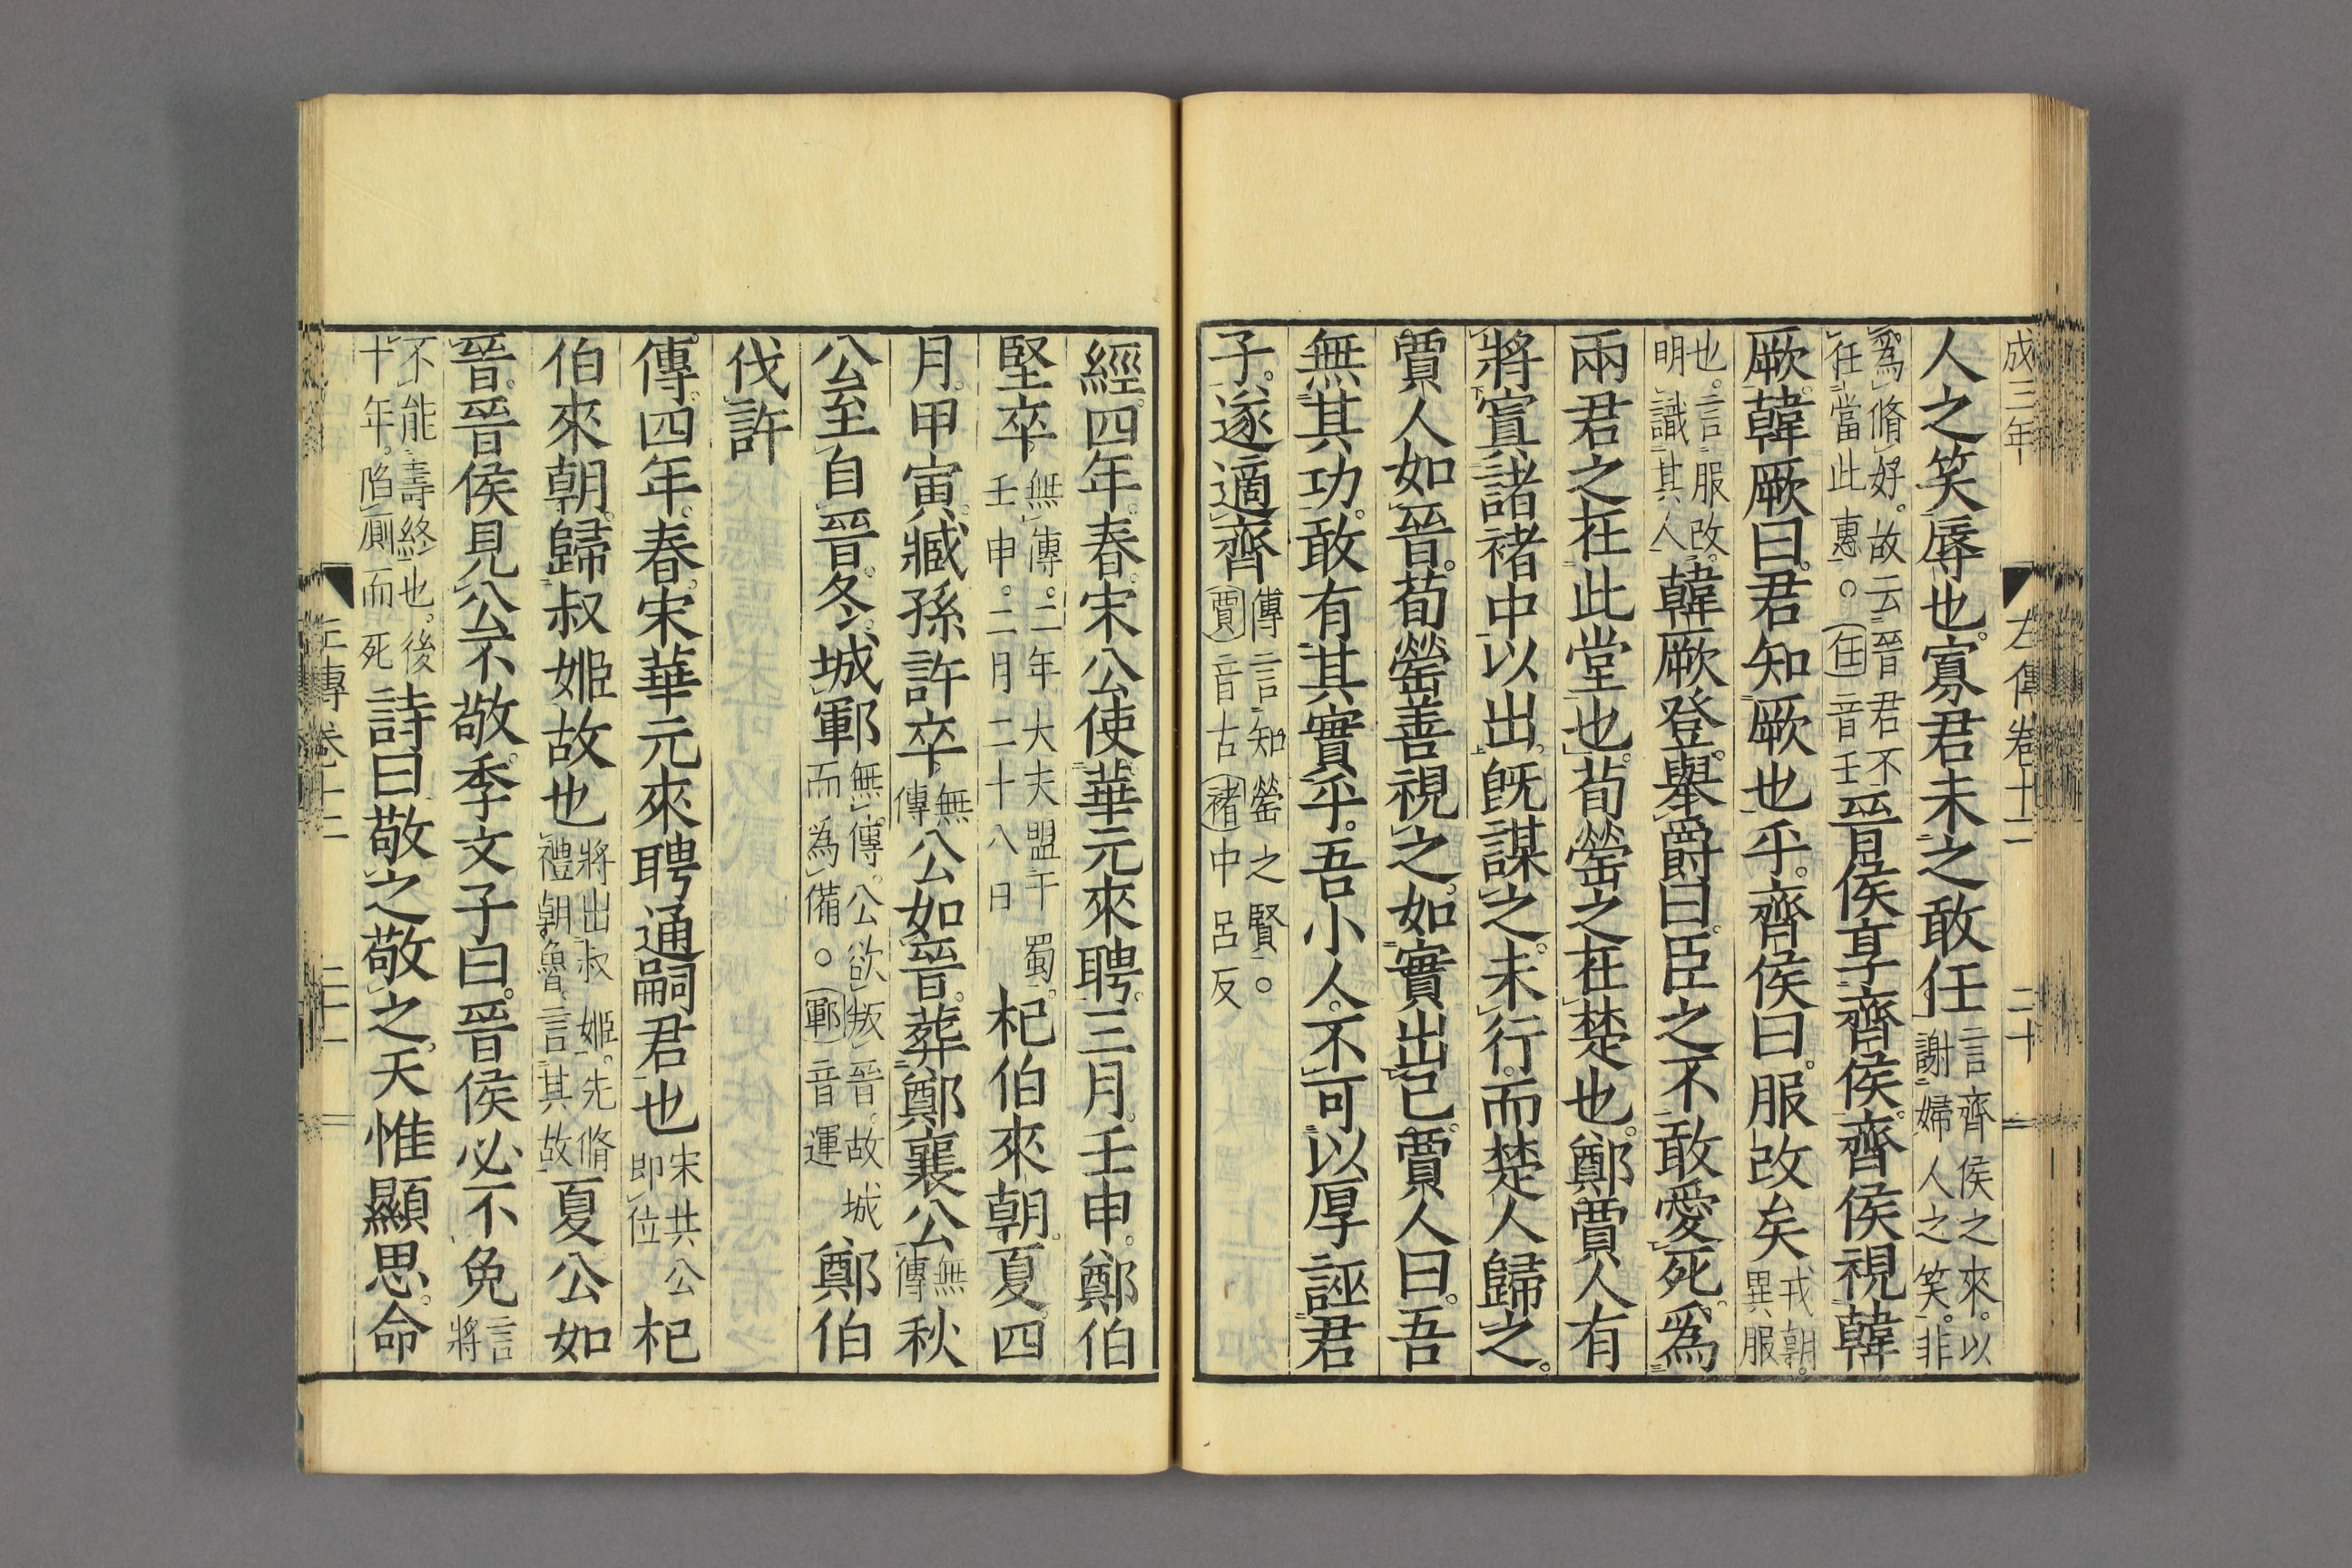 成三年
左傳卷十二
二十
人之笑辱也寡君未之敢任言齊侯之來以謝婦人之笑非
爲脩好故云晉君不任當此惠○任音壬晉侯享齊侯齊侯視韓
厥韓厥曰君知厥也乎齊侯曰服改矣戎朝異服
也言服改明識其人韓厥登舉爵曰臣之不敢愛死爲
兩君之在此堂也荀罃之在楚也鄭賈人有
將寘諸褚中以出旣謀之未行而楚人歸之
賈人如晉荀罃善視之如實出已賈人曰吾
無其功敢有其實乎吾小人不可以厚誣君
子遂適齊傳言知罃之賢○賈音古褚中呂反
經四年春宋公使華元來聘三月壬申鄭伯
堅卒無傳二年大夫盟于蜀壬申二月二十八日杞伯來朝夏四
月甲寅臧孫許卒無傳公如晉葬鄭襄公無傳秋
公至自晉冬城鄆無傳公欲叛晉故城而爲備○鄆音運鄭伯
伐許
傳四年春宋華元來聘通嗣君也宋共公即位杞
伯來朝歸叔姬故也將出叔姬先脩禮朝魯言其故夏公如
晉晉侯見公不敬季文子曰晉侯必不免言將
不能壽終也後十年陷厠而死詩曰敬之敬之天惟顯思命
左傳卷十二
二十一